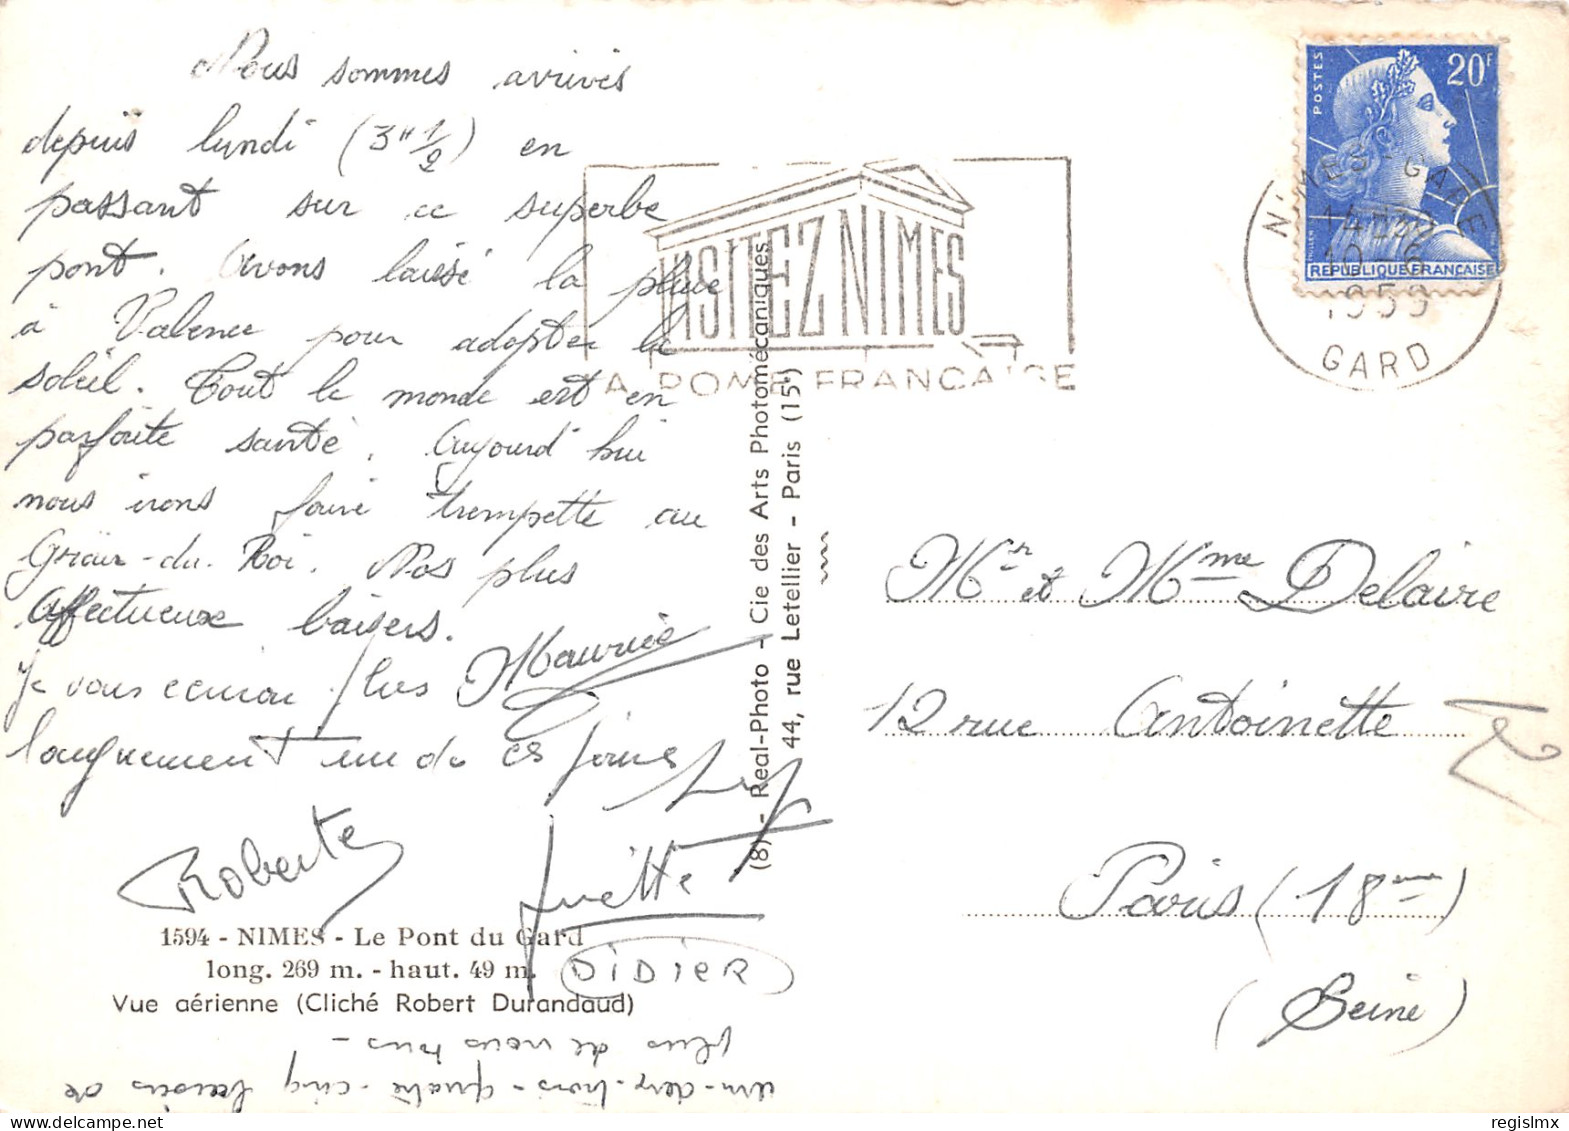 Nous sommes arrivés
depuis lundi (3H 1/2) en
passant sur ce superbe
pont. Avons laissé la pluie
à Valence pour adopter le
soleil. Tout le monde est en
parfaite santé. Aujourd'hui
nous irons faire trempette au
Graü-du-Roi. Nos plus
affectueux baisers.
Maurice
Je vous écrirai plus
longuement un de ces jours
Roberte
Yvette
DIDIER
1594 - NIMES - Le Pont du Gard
long. 269 m. - haut. 49 m.
Vue aérienne (Cliché Robert Durandaud)
un-deux-trois-quatre-cinq baisers de
plus de nous tous -
(8) - Real-Photo - Cie des Arts Photomécaniques
44, rue Letellier - Paris (15e)
VISITEZ NIMES
LA ROME FRANÇAISE
POSTES
20F
REPUBLIQUE FRANÇAISE
NIMES-GARE
1959
GARD
Mr et Mme Delaire
12 rue Antoinette
Paris (18eme)
(Seine)
regislmx